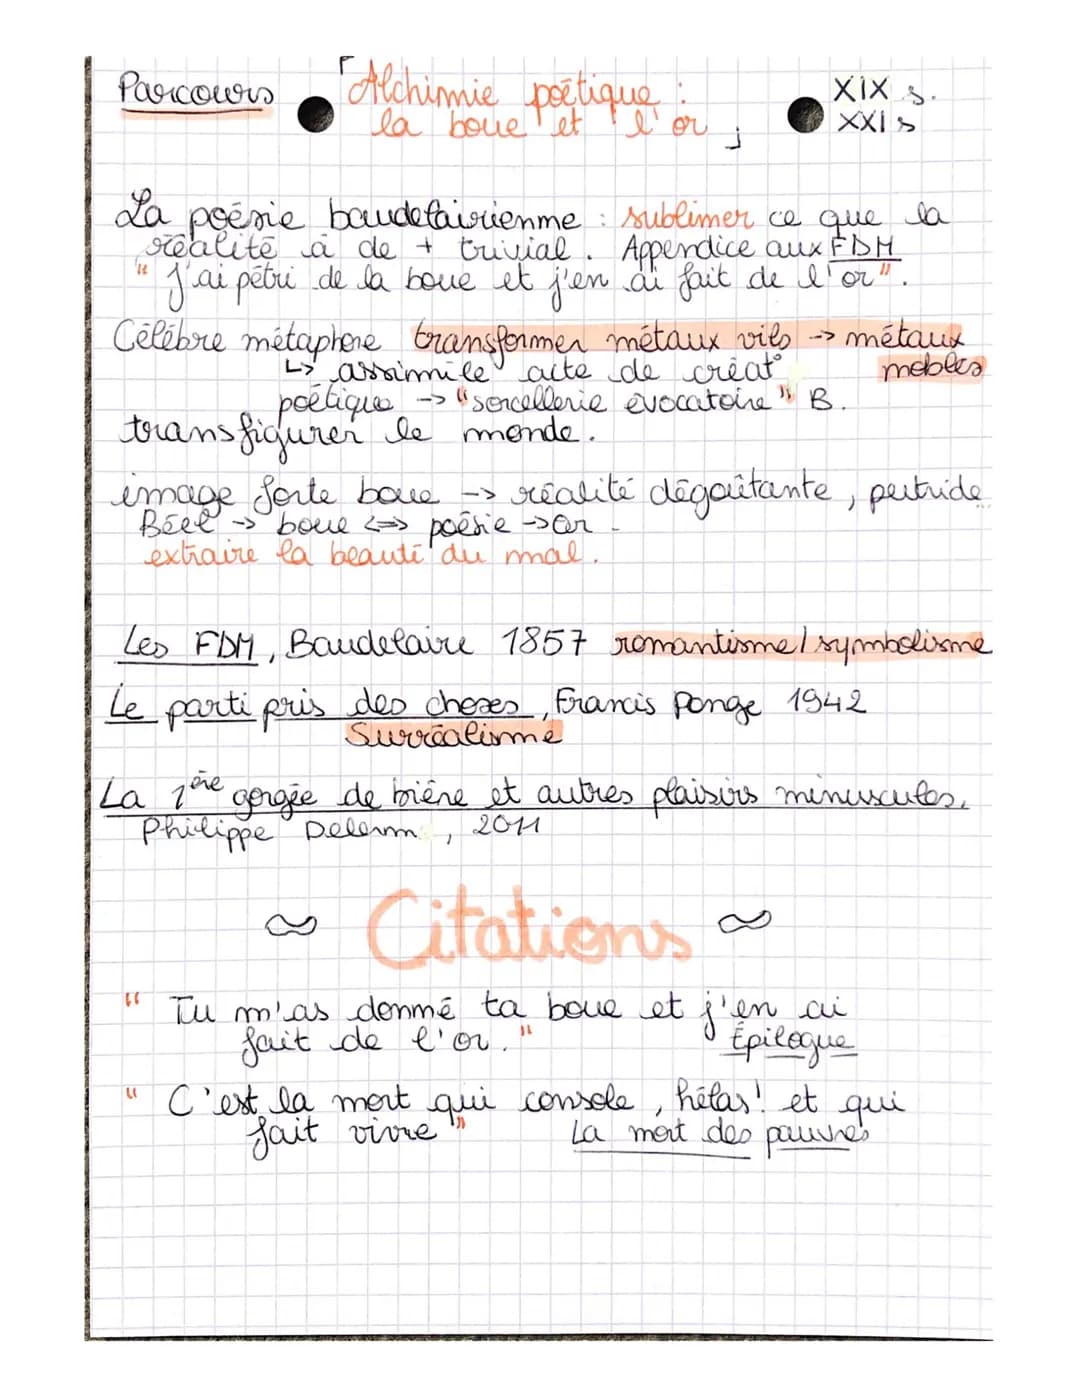 Parcours
「Alchimie poétique :
la boue et l'or」
XIX s.
XXI s
La poésie baudelairienne : sublimer ce que la
réalité à de + trivial. Appendice aux FDM
" J'ai pétri de la boue et j'en ai fait de l'or".
Célèbre métaphore transformer métaux vils -> métaux
↳ assimile acte de créat° nobles
poétique -> "sorcellerie évocatoire" B.
transfigurer le monde.
image forte boue -> réalité dégoûtante, putride
Réel -> boue <=> poésie -> or.
extraire la beauté du mal.
Les FDM, Baudelaire 1857 romantisme/symbolisme
Le parti pris des choses, Francis Ponge 1942
Surréalisme
La 1ère gorgée de bière et autres plaisirs minuscules.
Philippe Delerm, 2011
Citations
" Tu m'as donné ta boue et j'en ai
fait de l'or." Épilogue
" C'est la mort qui console, hélas! et qui
fait vivre" La mort des pauvres